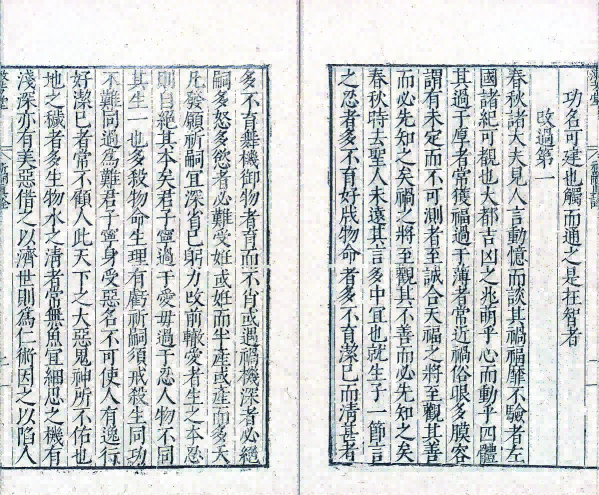 功名可建也觸而通之是在智者
改過第一
春秋諸大夫見人言動憶而談其禍福靡不驗者左
國諸紀可觀也大都吉凶之兆萌乎心而動乎四體
其過于厚者常獲福過于薄者常近禍俗眼多膜容
謂有未定而不可測者至誠合天福之將至觀其善
而必先知之矣禍之將至觀其不善而必先知之矣
春秋時去聖人未遠其言多中宜也就生子一節言
之忍者多不育好戕物命者多不育潔已而清甚者
多不育舞機御物者育而不肖或遇禍機深者必絕
嗣多怒多慾者必難受姙或姙而半產或產而多夭
凡發願祈嗣宜深省已躬力改前轍愛者生之本忍
則自絕其本矣君子寧過于愛毋過于忍人物不同
其生一也多殺物命生理有虧祈嗣須戒殺生同功
不難同過為難君子寧身受惡名不可使人有逸行
好潔已者常不顧人此天下之大惡鬼神所不佑也
地之穢者多生物水之清者常無魚宜細思之機有
淺深亦有美惡借之以濟世則為仁術因之以陷人